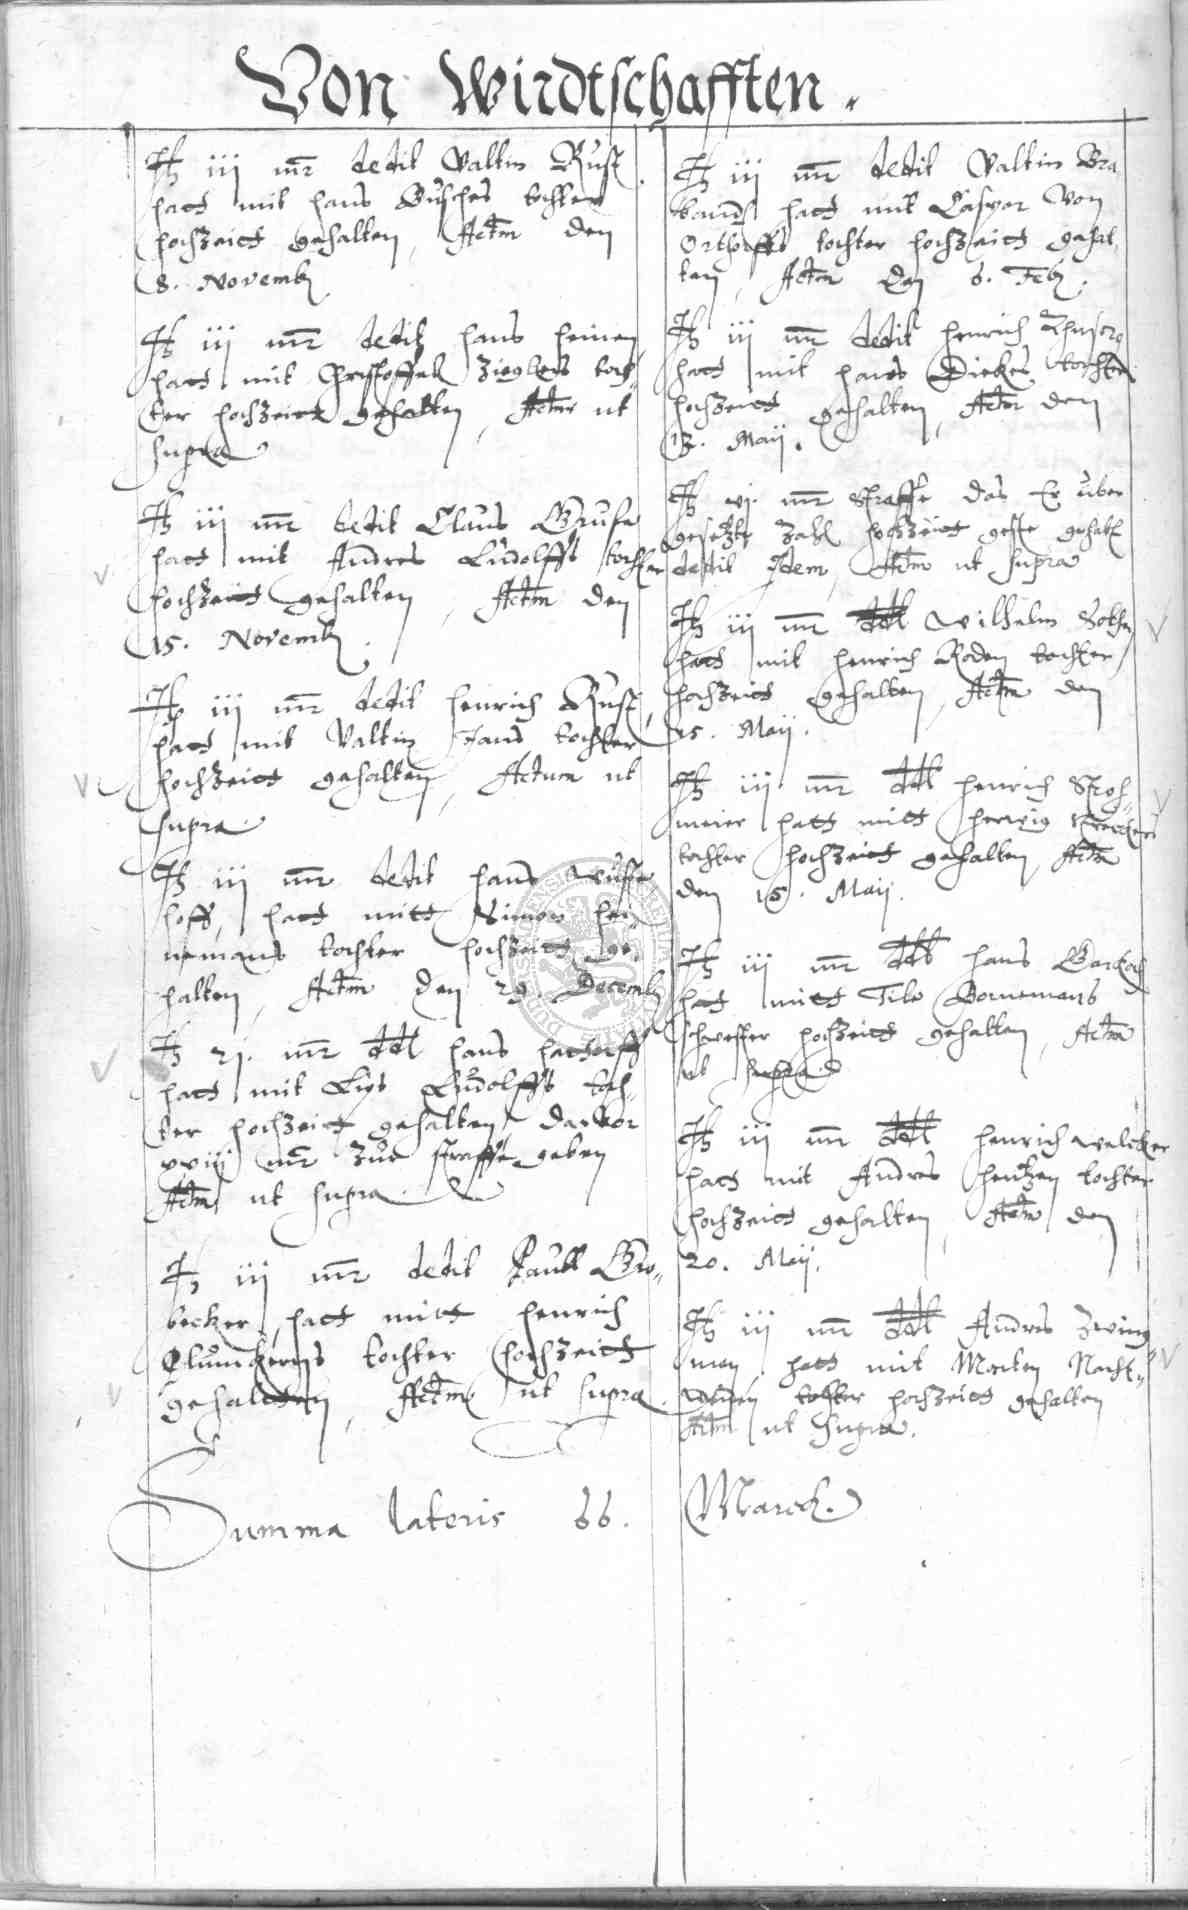 Von Wirdtschafften.
It iij mr dedit Valtin Rust
hatt mit Hans Busches tochter
hochzeitt gehalten, Actm den
8. Novemb.
It iij mr dedit Hans Heinen
hatt mit Christoffel Zieglers toch-
ter hochzeitt gehalten, Actm ut
supra
It iij mr dedit Claus Gruse
hatt mit Andres Ludolffs tochter
hochzeitt gehalten, Actm den
15. Novemb.
It iij mr dedit Henrich Rust,
hatt mit Valtin Hans tochter
hochzeitt gehalten, Actum ut
supra.
It iij mr dedit Hans Wüste
hoff, hatt mitt Simon Hei
nemans tochter hochzeitt ge-
halten, Actm den 29 Decemb
It mr ddt Hans
hatt mit Ludolffs toch-
ter hochzeitt gehalten darvor
xviij mr zur straffe geben
Actm ut supra
It iij mr dedit Paull Gro-
becker, hatt mitt Henrich
tochter hochzeitt
gehaltten, Actm ut supra.
It iij mr dedit Valtin Bra
bandt hatt mit Caspar Von
Orthoffs tochter hochzeitt gehal-
ten, Actm den 6. Feb.
It iij mr dedit Henrich
hatt mit Hans Dickes tochter
hochzeitt gehalten, Actm den
12. Maij.
It vj. mr Straffe das Er uber
gesetzte Zahl hochzeitt geste gehabt
dedit Idem, Actm ut supra
It iij mr ddt Wilhelm
hatt mit Henrich Roden tochter
hochzeitt gehalten, Actm den
15. Maij.
It iij mr ddt Henrich Stroh-
meier hatt mitt Herwig
tochter hochzeitt gehalten, Actm
den 15. Maij.
It iij mr ddt Hans
hatt mitt Tile Bornemans
schwester hochzeitt gehalten, Actm
ut supra
It iij mr ddt Henrich Walcker
hatt mit Andres Heutzen tochter
hochzeitt gehalten, Actm den
20. Maij.
It iij mr ddt Andres Zwing-
man hatt mit Marten Nacht-
tochter hochzeitt gehalten
Actm ut supra.
Summa lateris 66. Marck.